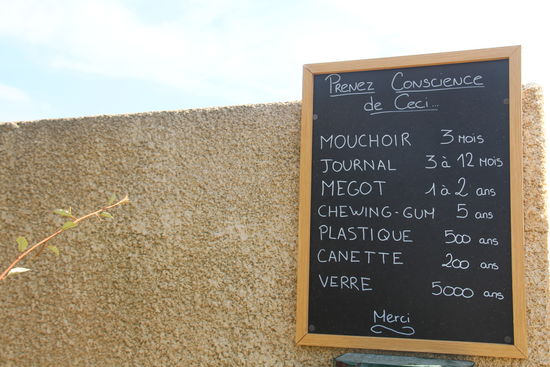 Prenez Conscience
de Ceci...
MOUCHOIR 3 MOIS
JOURNAL 3 à 12 MOIS
MEGOT 1 à 2 ans
CHEWING-GUM 5 ans
PLASTIQUE 500 ans
CANETTE 200 ans
VERRE 5000 ans
Merci